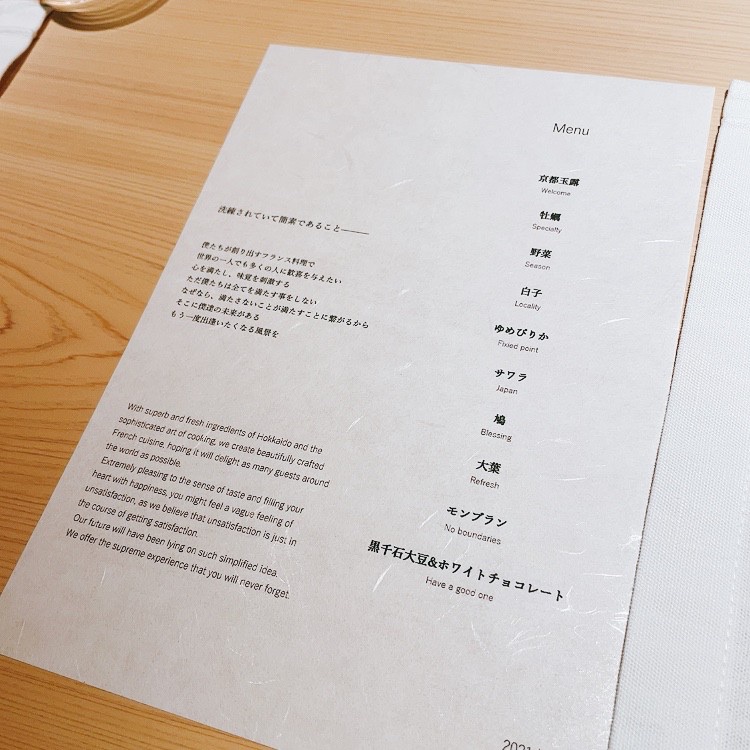 洗練されていて簡素であること———
僕たちが創り出すフランス料理で
世界の一人でも多くの人に歓喜を与えたい
心を満たし、味覚を刺激する
ただ僕たちは全てを満たす事をしない
なぜなら、満たさないことが満たすことに繋がるから
そこに僕達の未来がある
もう一度出逢いたくなる風景を
With superb and fresh ingredients of Hokkaido and the
sophisticated art of cooking, we create beautifully crafted
French cuisine, hoping it will delight as many guests around
the world as possible.
Extremely pleasing to the sense of taste and filling your
heart with happiness, you might feel a vague feeling of
unsatisfaction, as we believe that unsatisfaction is just in
the course of getting satisfaction.
Our future will have been lying on such simplified idea.
We offer the supreme experience that you will never forget.
Menu
京都玉露
Welcome
牡蠣
Specialty
野菜
Season
白子
Locality
ゆめぴりか
Fixied point
サワラ
Japan
鳩
Blessing
大葉
Refresh
モンブラン
No boundaries
黒千石大豆&ホワイトチョコレート
Have a good one
2021